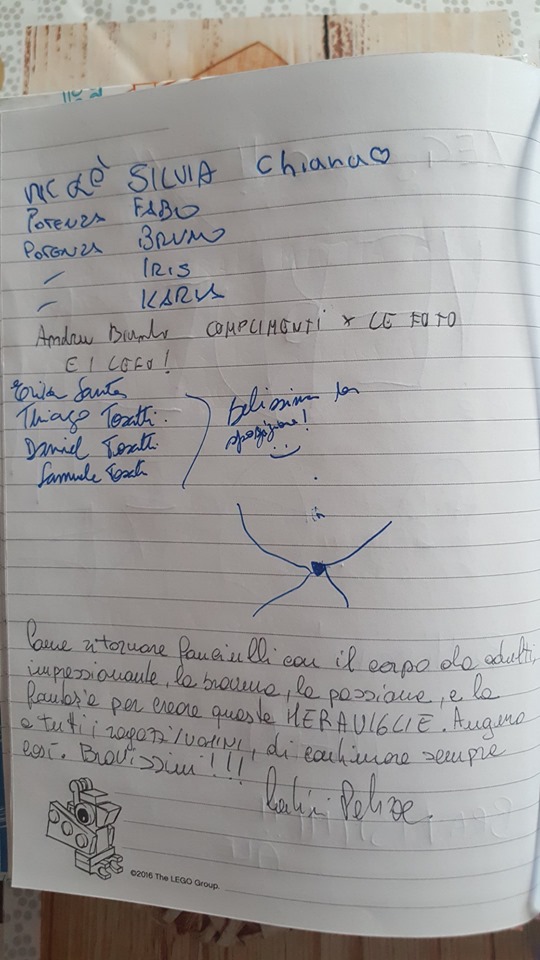 NICOLÒ SILVIA Chiana♡
POTENZA FABIO
POTENZA BRUNO
" IRIS
" KARUA
Andrea COMPLIMENTI x LE FOTO
E I LEGO!
Erika Santos
Thiago Tosatti
Daniel Tosatti
Samuele Tosatti
bellissima la
spiegazione!
Come ritornare fanciulli con il corpo da adulti,
impressionante, la bravura, la passione, e la
fantasia per creare queste MERAVIGLIE. Auguro
a tutti i ragazzi/UOMINI, di continuare sempre
così. Bravissimi!!!
Felice.
©2016 The LEGO Group.